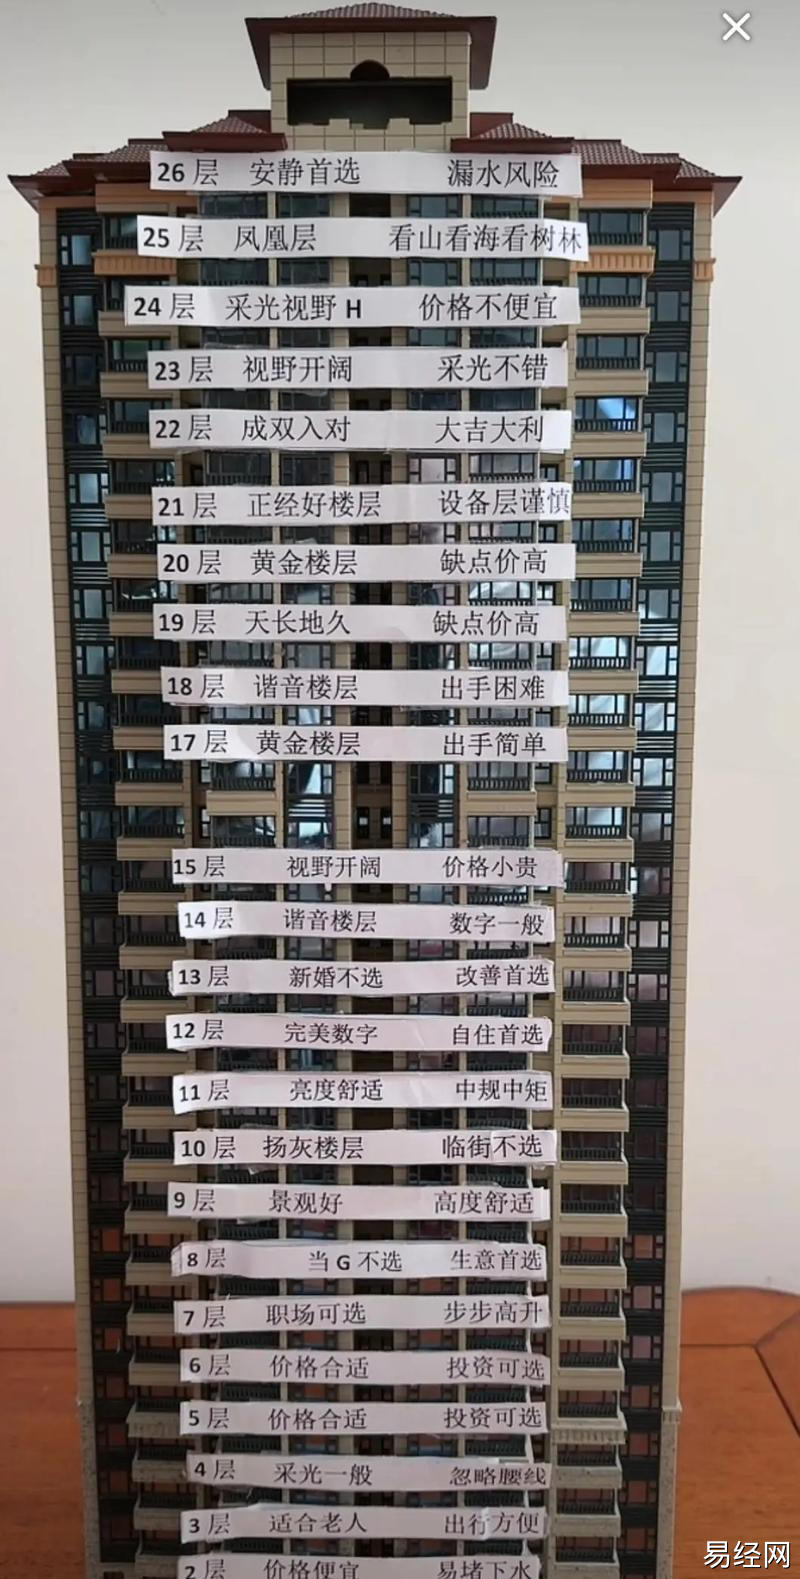 26 层 安静首选 漏水风险
25 层 凤凰层 看山看海看树林
24 层 采光视野 H 价格不便宜
23 层 视野开阔 采光不错
22 层 成双入对 大吉大利
21 层 正经好楼层 设备层谨慎
20 层 黄金楼层 缺点价高
19 层 天长地久 缺点价高
18 层 谐音楼层 出手困难
17 层 黄金楼层 出手简单
15 层 视野开阔 价格小贵
14 层 谐音楼层 数字一般
13 层 新婚不选 改善首选
12 层 完美数字 自住首选
11 层 亮度舒适 中规中矩
10 层 扬灰楼层 临街不选
9 层 景观好 高度舒适
8 层 当 G 不选 生意首选
7 层 职场可选 步步高升
6 层 价格合适 投资可选
5 层 价格合适 投资可选
4 层 采光一般 忽略腰线
3 层 适合老人 出行方便
2 层 价格便宜 易堵下水
易经网